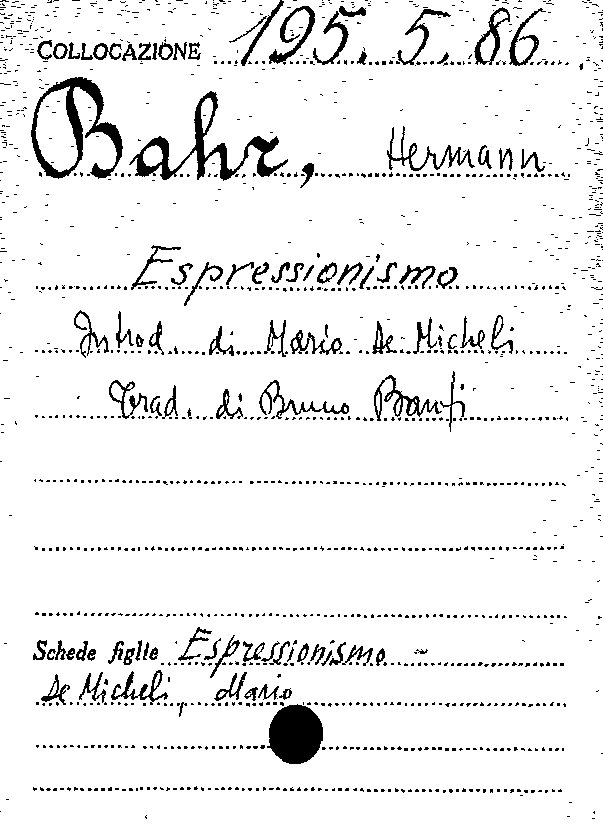 COLLOCAZIONE 195.5.86
Bahr, Hermann
Espressionismo
Introd. di Mario De Micheli
Trad. di Bruno Banfi
Schede figlie Espressionismo -
De Micheli, Mario